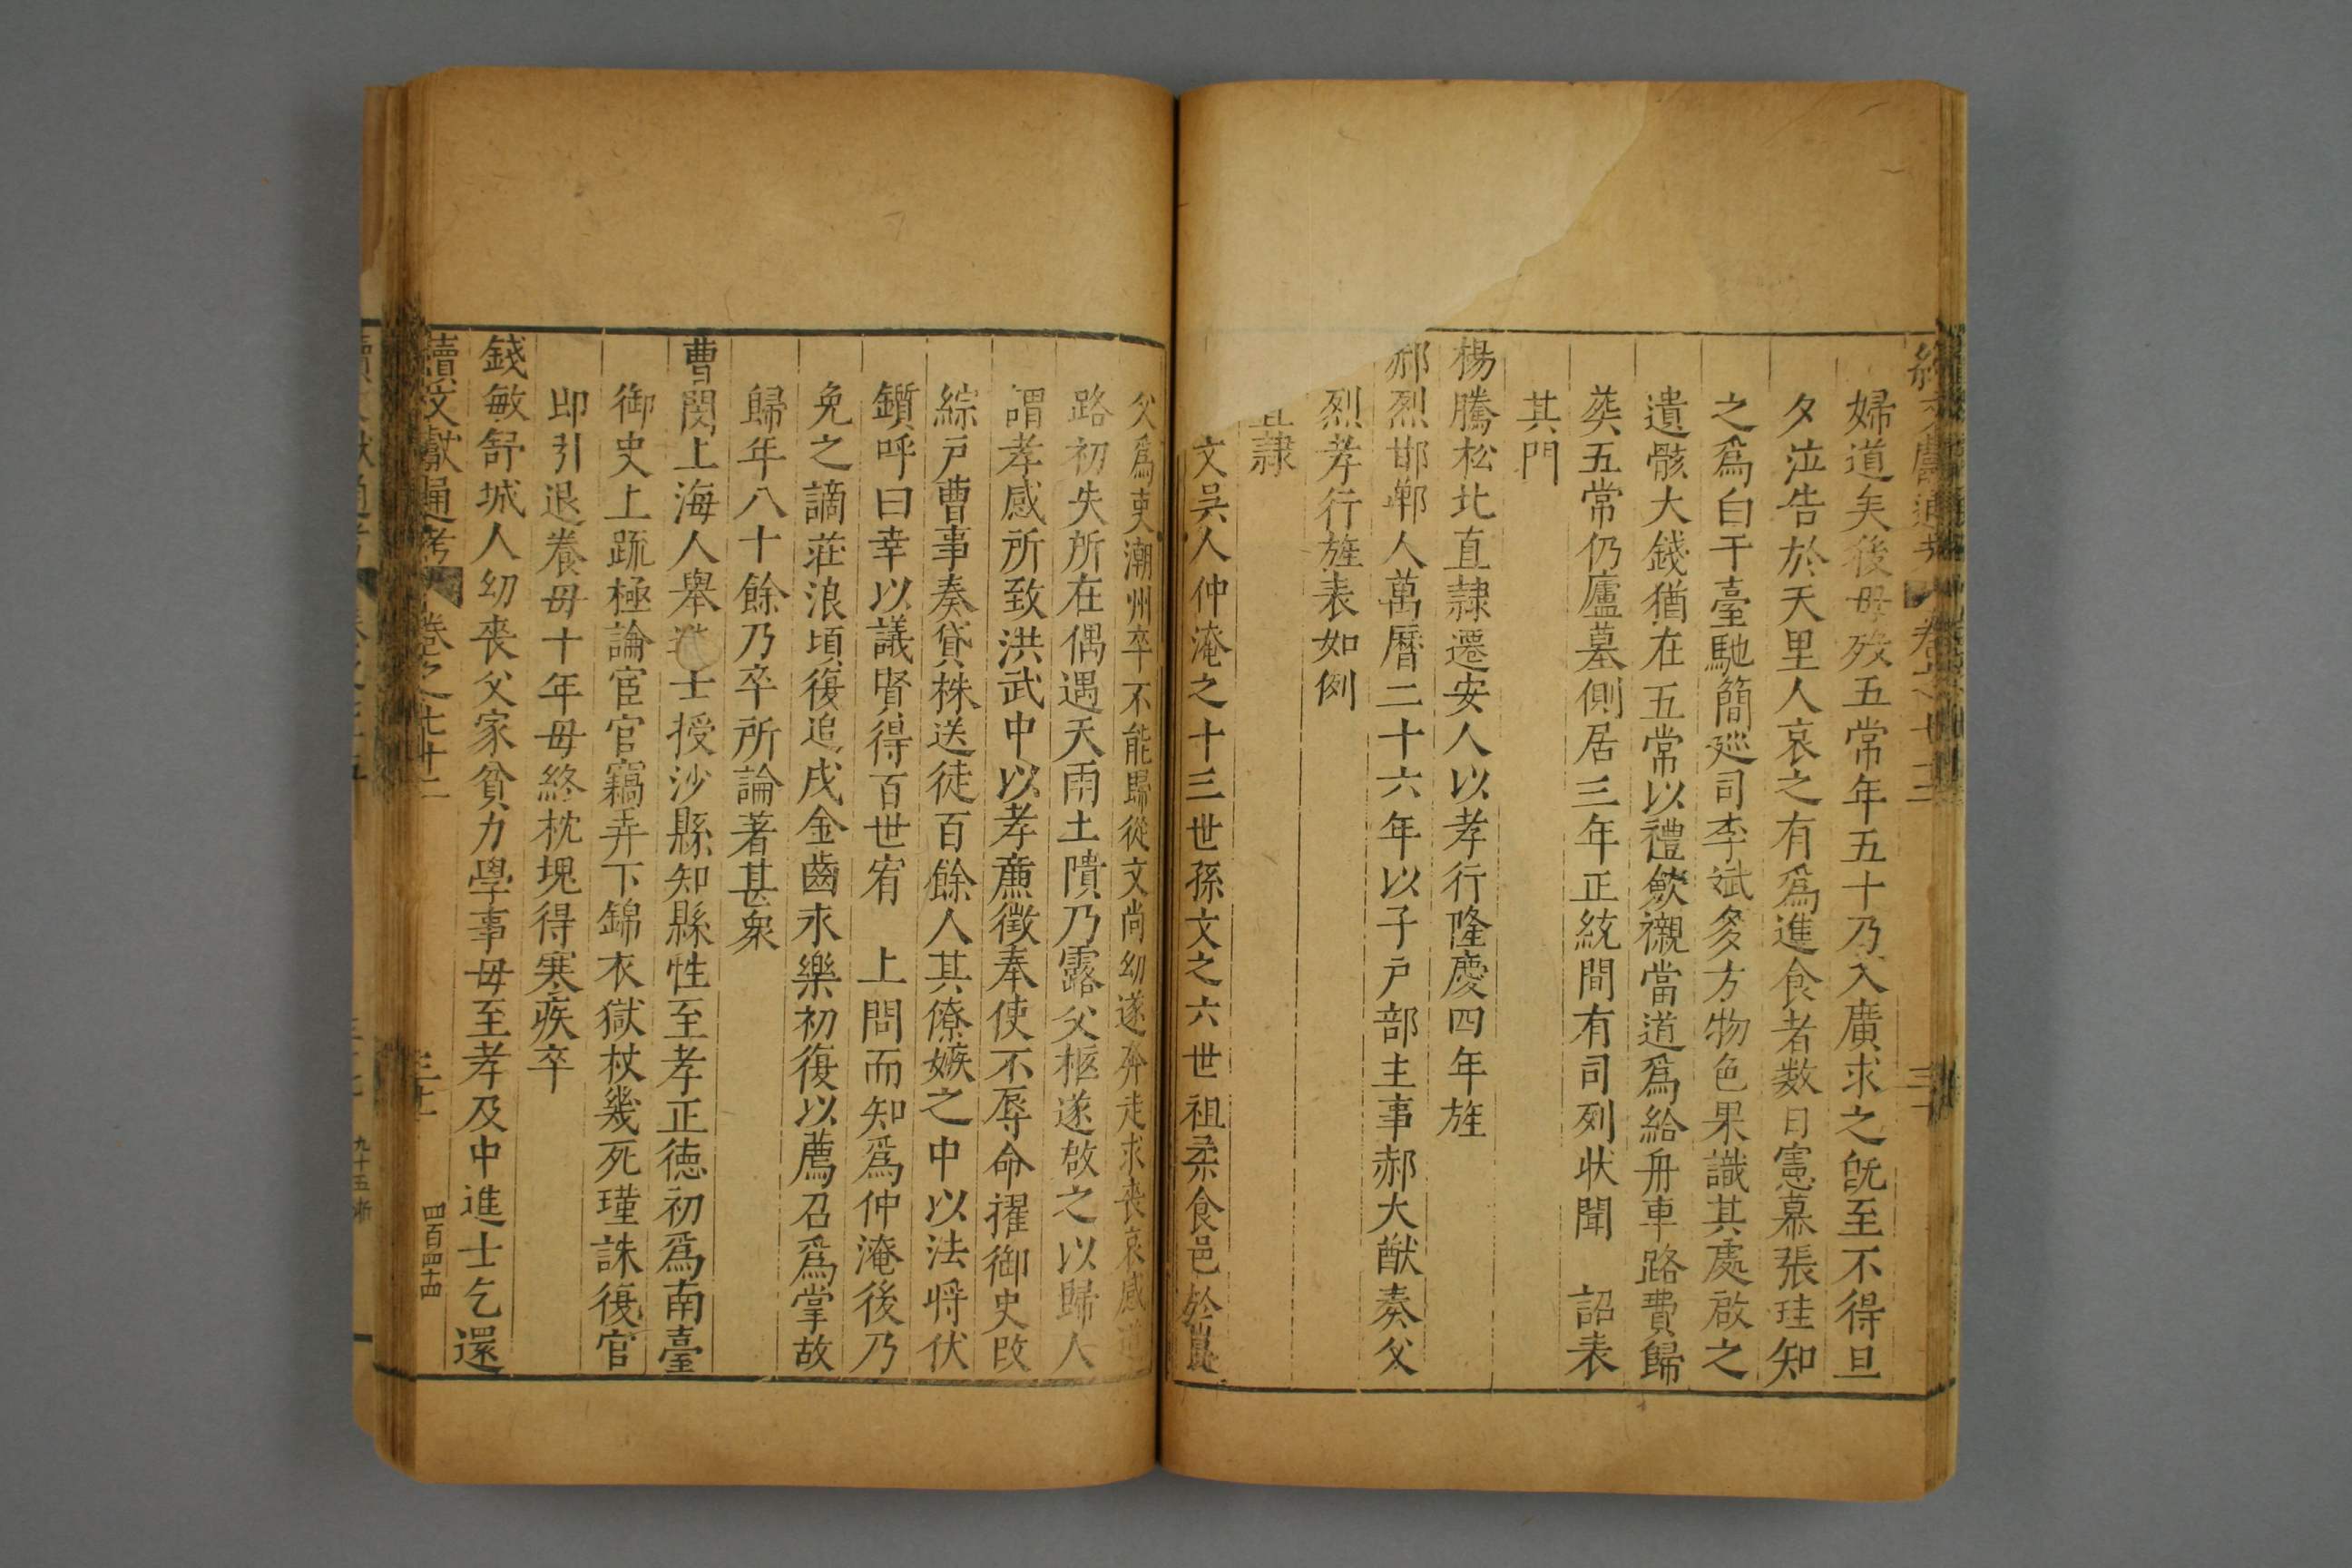 婦道矣後母歿五常年五十乃入廣求之旣至不得旦
夕泣告於天里人哀之有爲進食者數日憲幕張珪知
之爲白于臺馳簡廵司李斌多方物色果識其處啟之
遺骸大錢猶在五常以禮歛襯當道爲給舟車路費歸
葬五常仍廬墓側居三年正統間有司列狀聞　詔表
其門
楊騰松北直隷遷安人以孝行隆慶四年旌
郝烈邯鄲人萬曆二十六年以子戶部主事郝大猷奏父
烈孝行旌表如例
直隷
文吳人仲淹之十三世孫文之六世祖柔食邑於崑
父爲吏潮州卒不能歸從文尚幼遂奔走求喪哀感道
路初失所在偶遇天雨土隤乃露父柩遂啟之以歸人
謂孝感所致洪武中以孝亷徵奉使不辱命擢御史改
綜戶曹事奏貸株送徒百餘人其僚嫉之中以法將伏
鑕呼曰幸以議賢得百世宥　上問而知爲仲淹後乃
免之謫莊浪頃復追戍金齒永樂初復以薦召爲掌故
歸年八十餘乃卒所論著甚衆
曹閔上海人舉進士授沙縣知縣性至孝正德初爲南臺
御史上疏極論宦官竊弄下錦衣獄杖幾死瑾誅復官
即引退養母十年母終枕塊得寒疾卒
錢敏舒城人幼喪父家貧力學事母至孝及中進士乞還
續文獻通考　卷之七十二
四百四十四